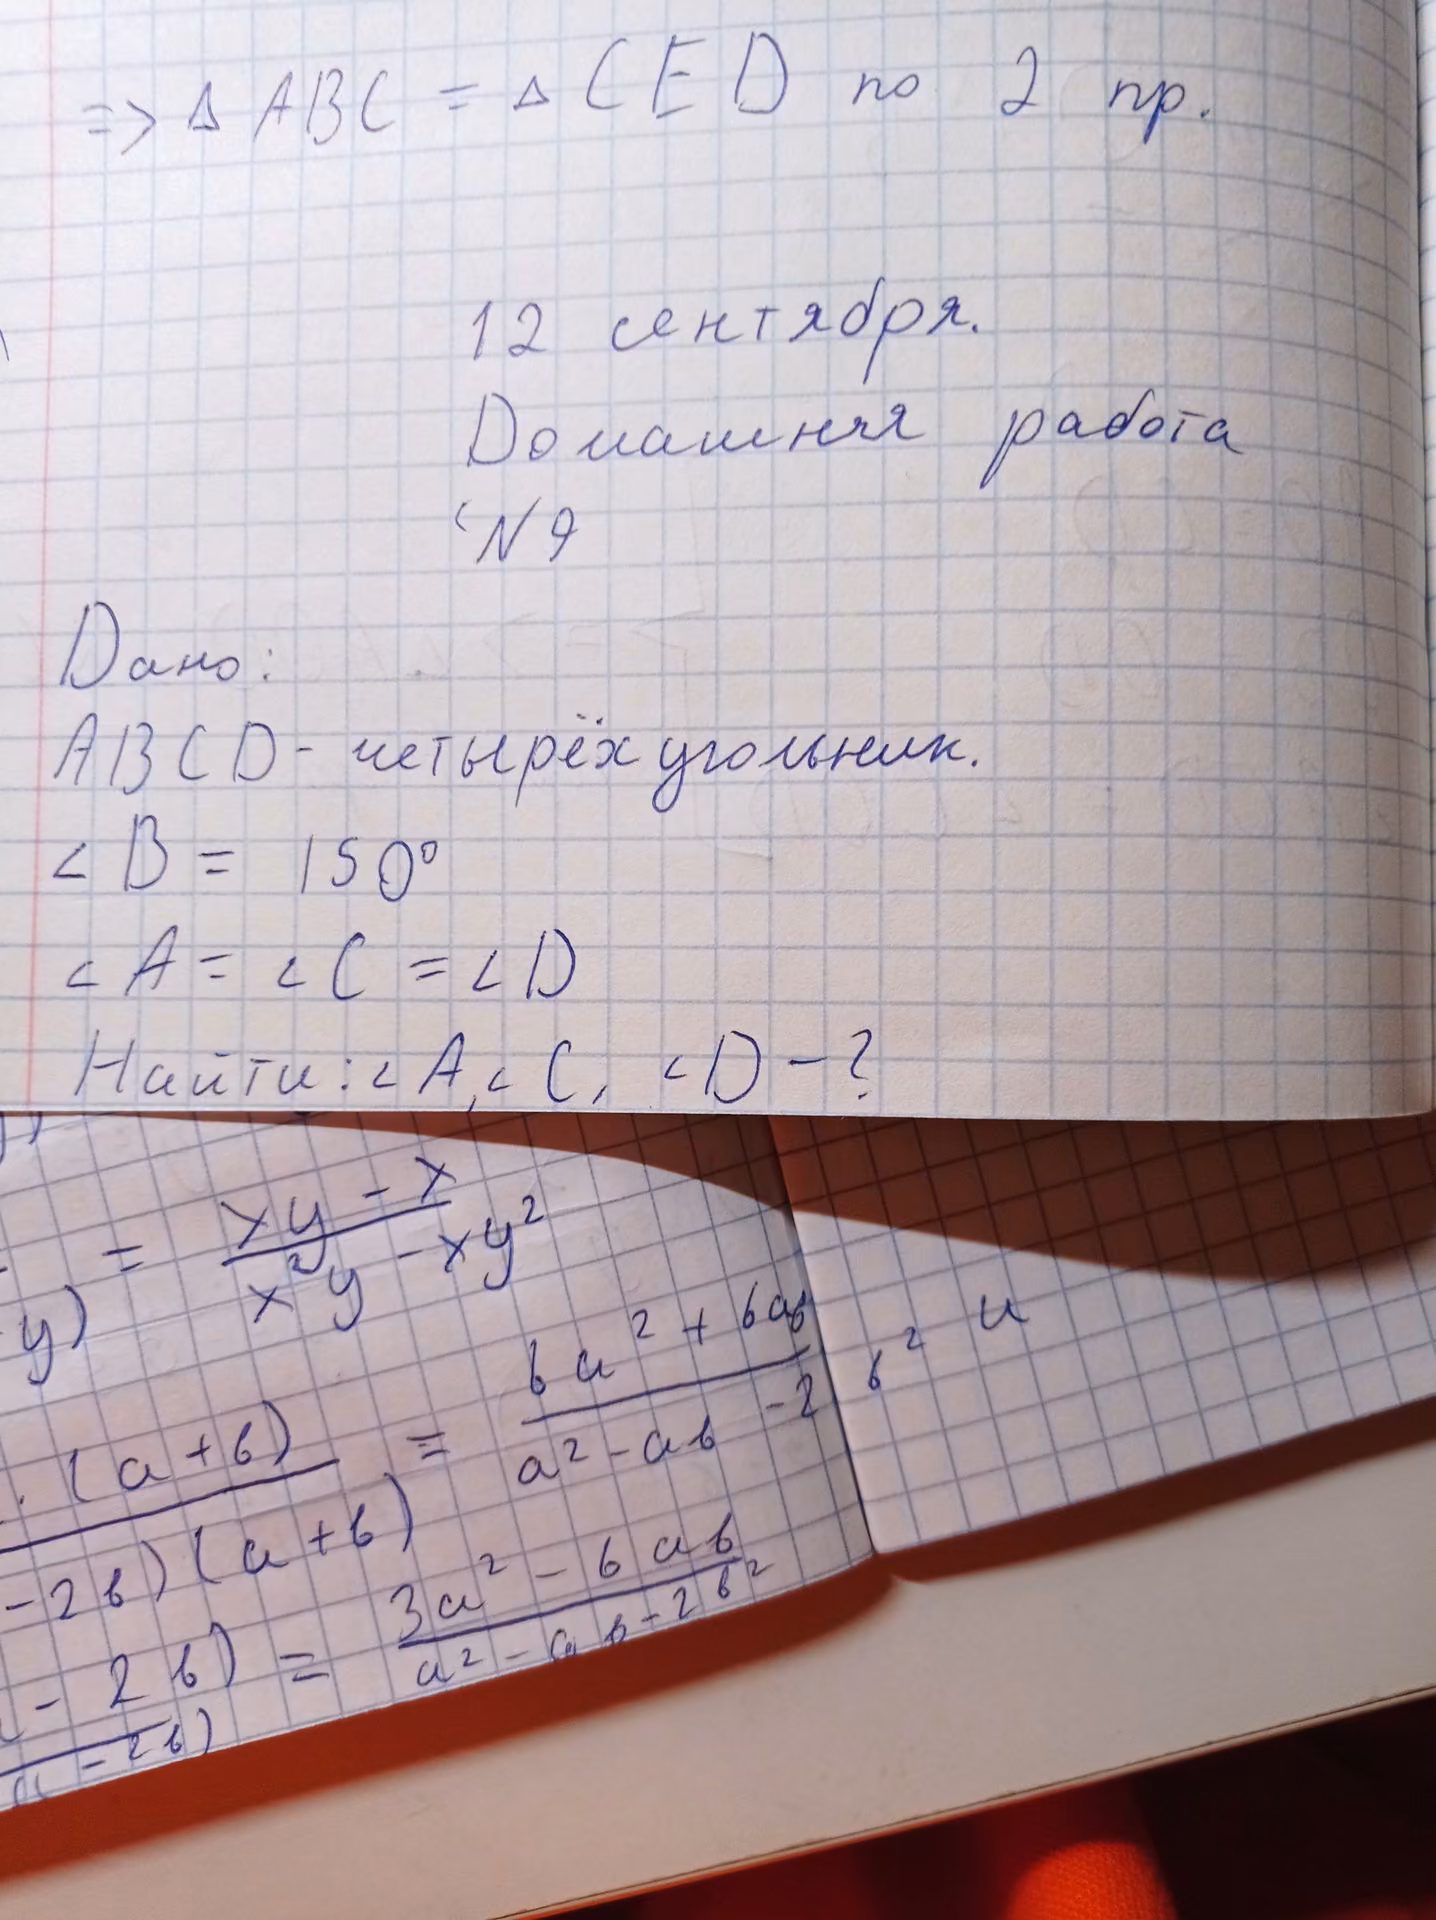 => Δ ABC = Δ CED по 2 пр.
12 сентября.
Домашняя работа
N 9
Дано:
ABCD - четырёхугольник.
∠ B = 150°
∠ A = ∠ C = ∠ D
Найти: ∠ A, ∠ C, ∠ D - ?
= (xy - x)/(x²y - xy²)
y)
· (a + b) = (6a² + 6ab)/(a² - ab - 2b²) и
- 2b)(a + b)
- 2b) = (3a² - 6ab)/(a² - ab - 2b²)
a - 2b)